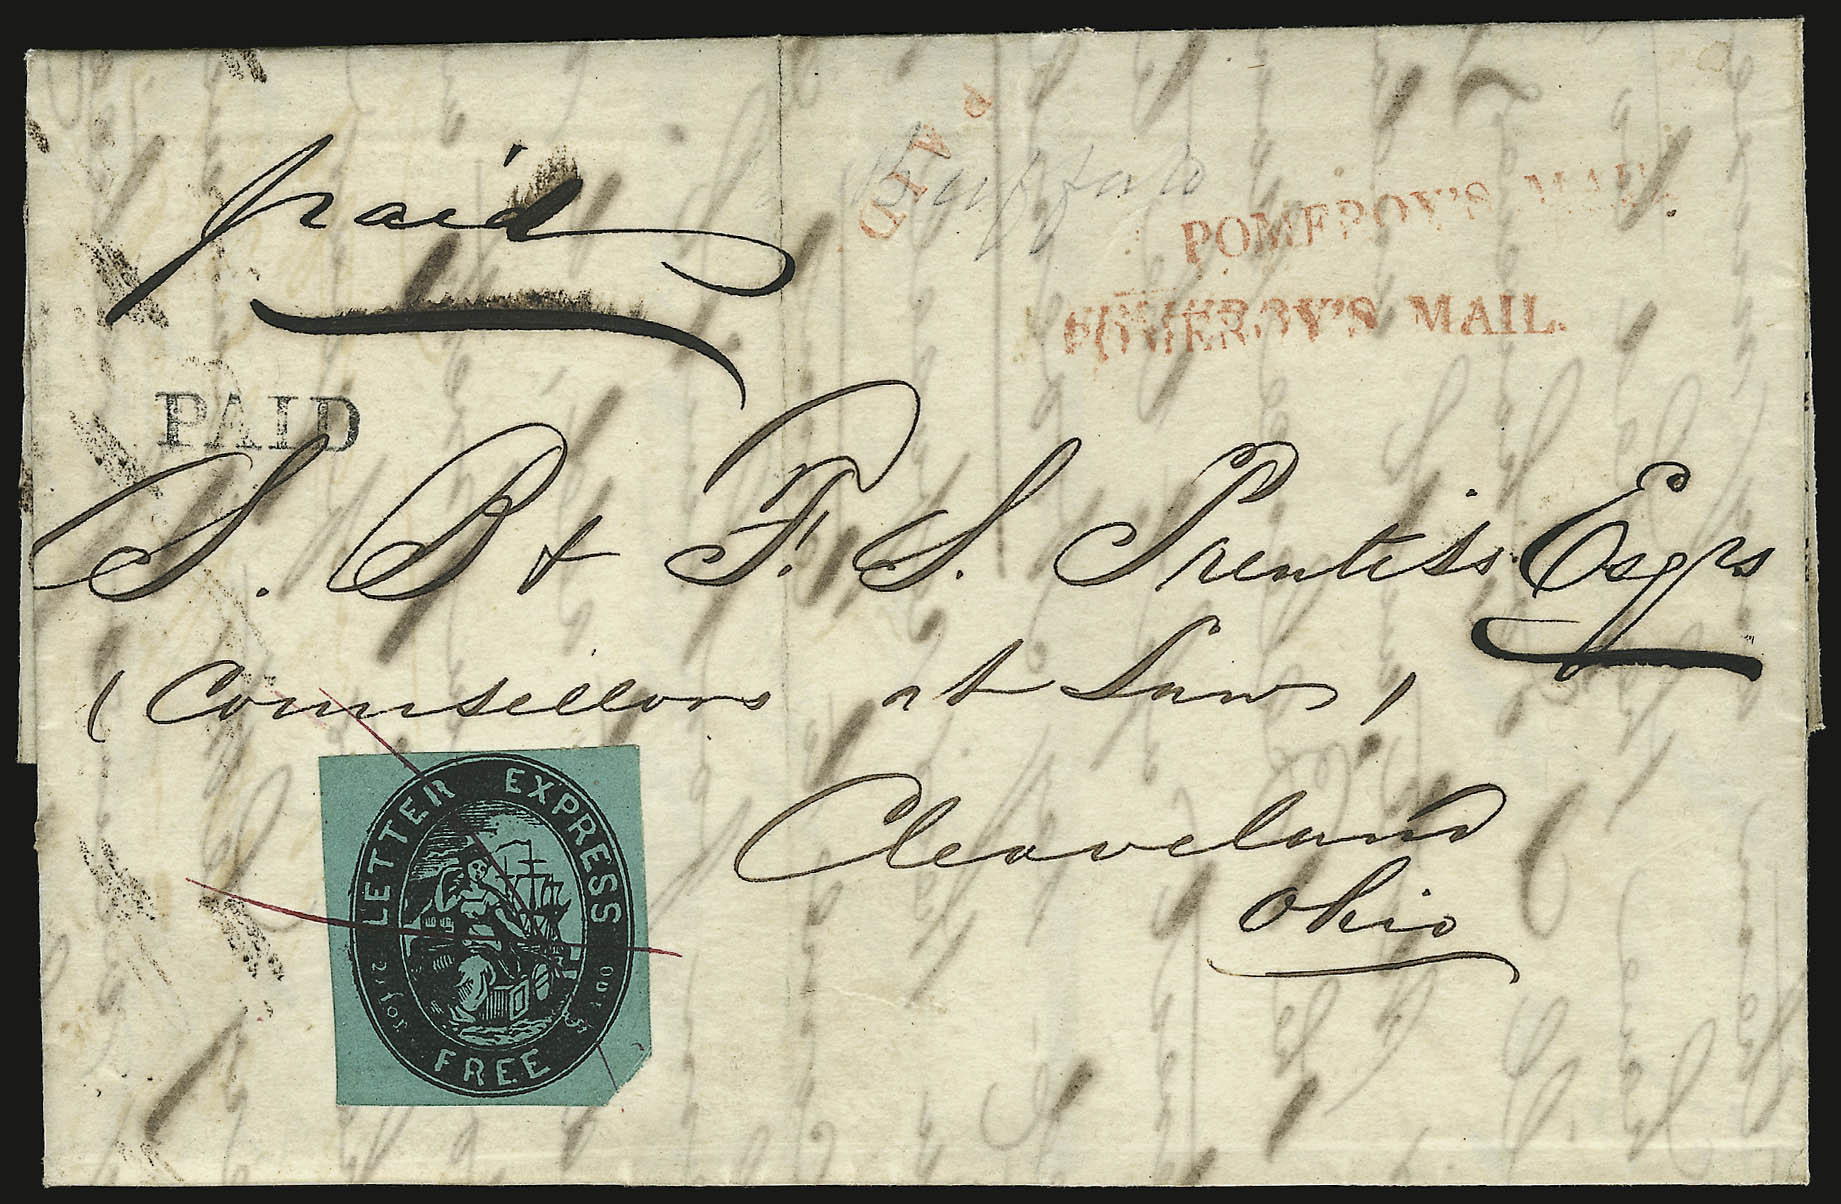 paid
PAID
Buffalo
POMEROY'S MAIL.
POMEROY'S MAIL.
PAID
S. B & F. S. Prentiss Esqrs
(Counsellors at Law)
Cleaveland
Ohio
LETTER EXPRESS
FREE